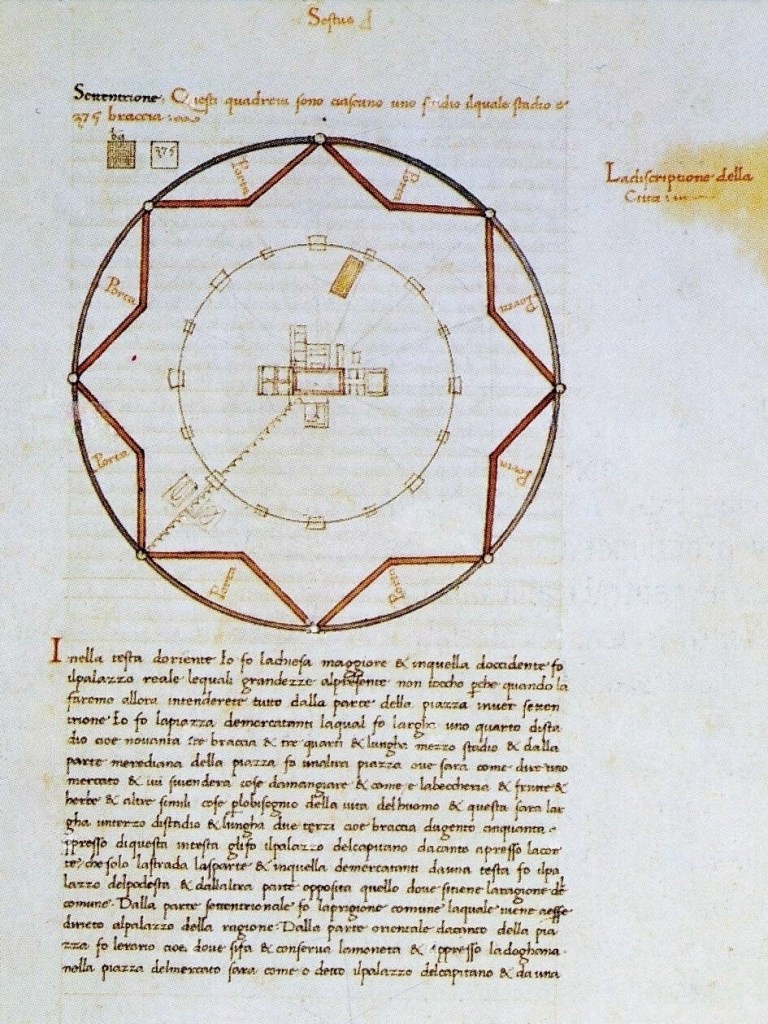 Sestus
Settentrione, Questi quadretti sono ciascuno uno stadio ilquale stadio e
375 braccia
375
Ladiscriptione della
Citta
Porta
Porta
Porta
Porta
Porta
Porta
Porta
Porta
Inella testa doriente Io fo lachiesa maggiore & inquella doccidente fo
ilpalazzo reale lequali grandezze alpresente non toccho perche quando la
faremo allora intenderete tutto dalla parte della piazza inver setten
trione Io fo lapiazza demercatanti laqual fo largha uno quarto dista
dio cioe novanta tre braccia & tre quarti & lungha mezzo stadio & dalla
parte meridiana della piazza fo unaltra piazza ove sara come dire uno
mercato & ivi sivendera cose damangiare & come e labeccheria & frutte &
herbe & altre simili cose plobisogno della vita delhuomo & questa sara lar
gha unterzo distadio & lungha due terzi cioe braccia dugento cinquanta
appresso diquesta intesta glifo ilpalazzo delcapitano dacanto apresso lacor
te, che solo lastrada lasparte & inquella demercatanti dauna testa fo ilpa
lazzo delpodesta & dallaltra parte opposita quello dove sitiene laragione del
comune. Dalla parte settentrionale fo laprigione comune laquale viene aesse
dirieto alpalazzo della ragione. Dalla parte orientale dacanto della pia
zza fo lerario cioe, dove sifa & conserva lamoneta & appresso ladoghana
nella piazza delmercato sara come o detto ilpalazzo delcapitano & da una